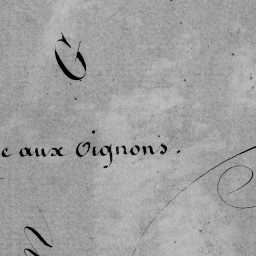 G
e aux Oignons.